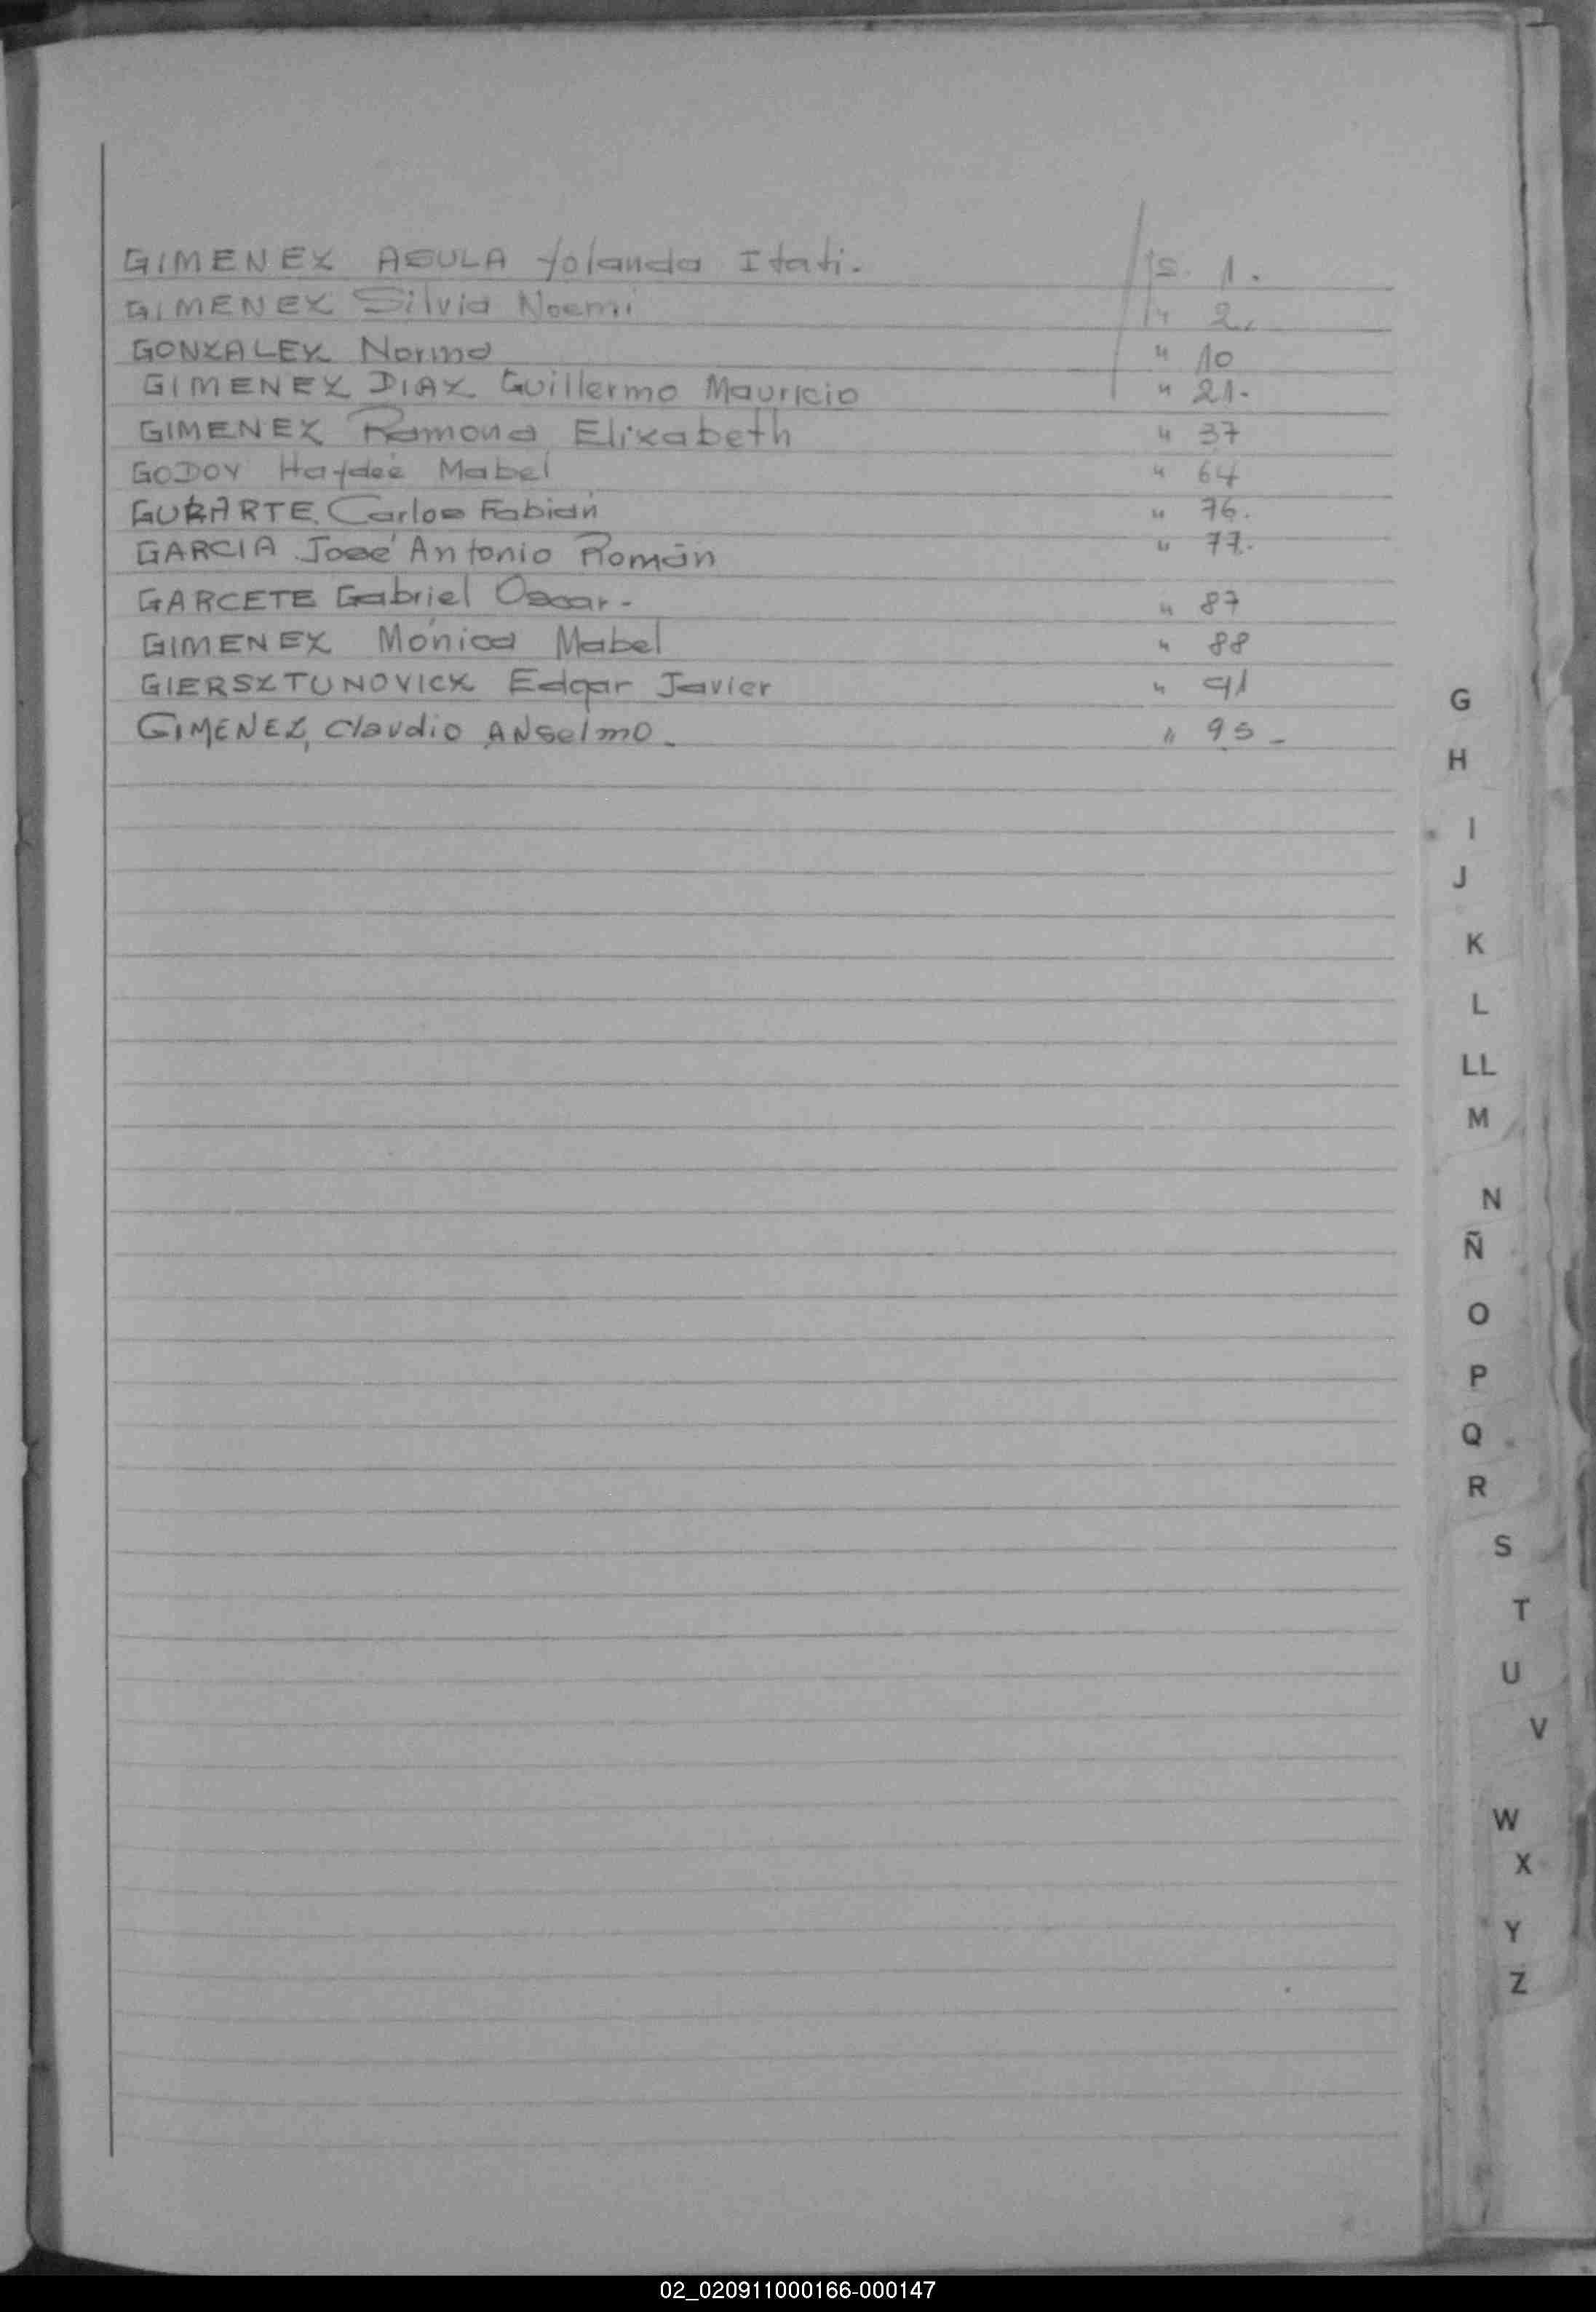 GIMENEZ AGULA Yolanda Itati. fs. 1.
GIMENEZ Silvia Noemi " 2.
GONZALEZ Norma " 10
GIMENEZ DIAZ Guillermo Mauricio " 21.
GIMENEZ Ramona Elizabeth " 37
GODOY Haydeé Mabel " 64
Carlos Fabián " 76.
GARCIA José Antonio Román " 77.
GARCETE Gabriel Oscar. " 87
GIMENEZ Mónica Mabel " 88
GIERSZTUNOVICZ Edgar Javier " 91
GIMENEZ, Claudio ANselmo. " 95 -
G
H
I
J
K
L
LL
M
N
Ñ
O
P
Q
R
S
T
U
V
W
X
Y
Z
02_020911000166-000147